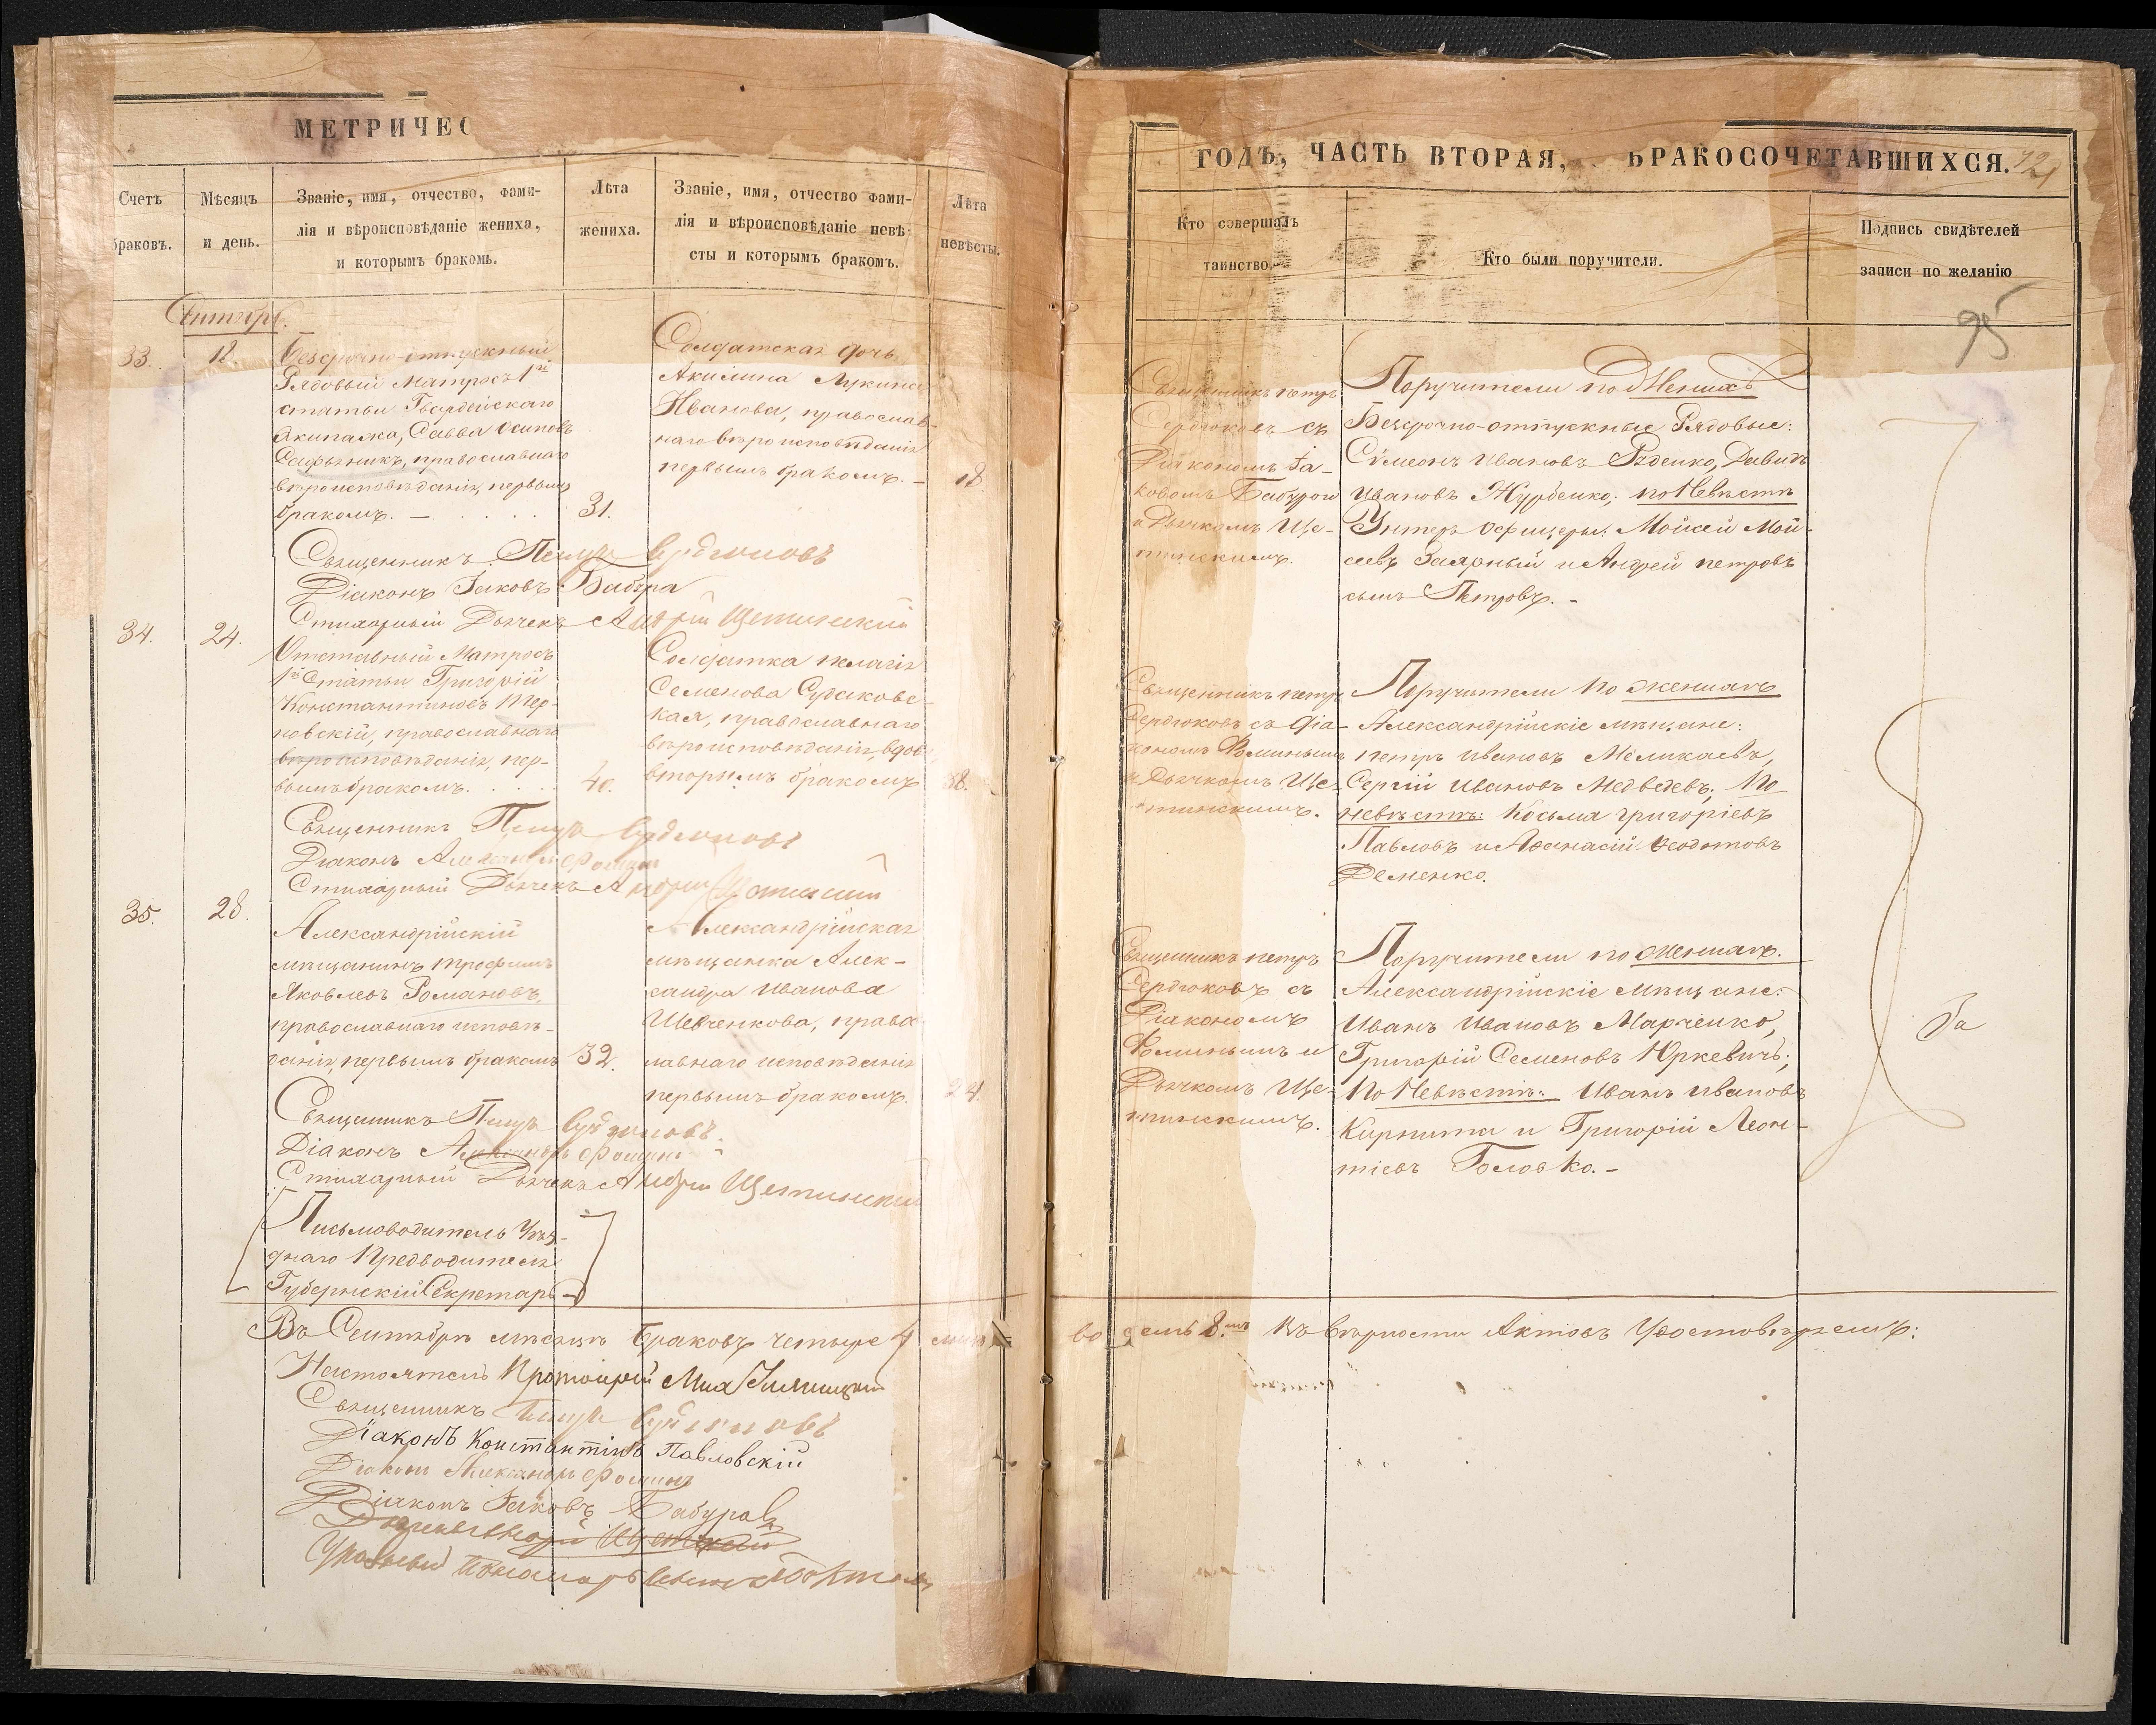 МЕТРИЧЕС
Счетъ браковъ.
Мѣсяцъ и день.
Званіе, имя, отчество, фами-
лія и вѣроисповѣданіе жениха,
и которымъ бракомъ.
Лѣта
жениха.
Званіе, имя, отчество фами-
лія и вѣроисповѣданіе невѣ-
сты и которымъ бракомъ.
Лѣта
невѣсты.
33.
12.
Безсрочно-отпускный
Рядовый Матросъ 1й
статьи Гвардейскаго
Экипажа, Савва Осиповъ
православнаго
вѣроисповѣданія, первымъ
бракомъ. —
31.
Солдатская дочь
Акилина Лукина
Иванова, православ-
наго вѣроисповѣданія
первымъ бракомъ. —
18
Священникъ Петръ Сердюковъ
Діаконъ Іаковъ Бабура
Стихарный Дьячекъ Андрей Щетинскій
34.
24.
Отставный Матросъ
1й Статьи Григорій
Константиновъ Тер-
новскій, православнаго
вѣроисповѣданія, пер-
вымъ бракомъ.
40.
Солдатка Пелагія
Семенова Судаковс-
кая, православнаго
вѣроисповѣданія, вдова
вторымъ бракомъ
38.
Священникъ Петръ Сердюковъ
Діаконъ Александръ Фоминъ
Стихарный Дьячекъ Андрей Щетинскій
35.
28.
Александрійскій
мѣщанинъ Трофимъ
Яковлевъ Романовъ,
православнаго исповѣ-
данія, первымъ бракомъ
32.
Александрійская
мѣщанка Алек-
сандра Иванова
Шевченкова, право
славнаго исповѣданія
первымъ бракомъ.
24.
Священникъ Петръ Сердюковъ.
Діаконъ Александръ Фоминъ
Стихарный Дьячекъ Андрей Щетинскій
Письмоводитель Уѣз-
днаго Предводителя
Губернскій Секретарь
Въ Сентябрѣ мѣсяцѣ браковъ четыре 4
Настоятель Протоіерей
Священникъ Петръ Сердюковъ
Діаконъ Константинъ Павловскій
Діаконъ Александръ Фоминъ
Діаконъ Іаковъ Бабура
Пономарь
ГОДЪ, ЧАСТЬ ВТОРАЯ, БРАКОСОЧЕТАВШИХСЯ.
Кто совершалъ
таинство.
Кто были поручители.
Подпись свидѣтелей
записи по желанію
95
Священникъ Петръ
Сердюковъ съ
Діакономъ Іа-
ковомъ Бабурою
и Дьячкомъ Ще-
тинскимъ.
Поручители по Женихѣ
Безсрочно-отпускные Рядовые:
Сѵмеонъ Ивановъ Руденко, Давидъ
Ивановъ Журбенко; по Невѣстѣ
Унтеръ Офицеры: Мойсей Мой-
сеевъ Заярный и Андрей Петровъ
сынъ Петровъ. -
Священникъ Петръ
Сердюковъ съ Діа-
кономъ Фоминымъ
и Дьячкомъ Ще-
тинскимъ.
Поручители по женихѣ
Александрійскіе мѣщане:
Петръ Ивановъ Меликаевъ,
Сергій Ивановъ Медведевъ; По
невѣстѣ: Косьма Григоріевъ
Павловъ и Афанасій Феодотовъ
Деменко.
Священникъ Петръ
Сердюковъ съ
Діакономъ
Фоминымъ и
Дьячкомъ Ще-
тинскимъ.
Поручители по женихѣ.
Александрійскіе мѣщане:
Иванъ Ивановъ Марченко,
Григорій Семеновъ Юркевичъ;
По Невѣстѣ: Иванъ Ивановъ
Кирпита и Григорій Леон-
тіевъ Головко. -
во день 8. Въ вѣрности Актовъ Удостовѣряемъ: